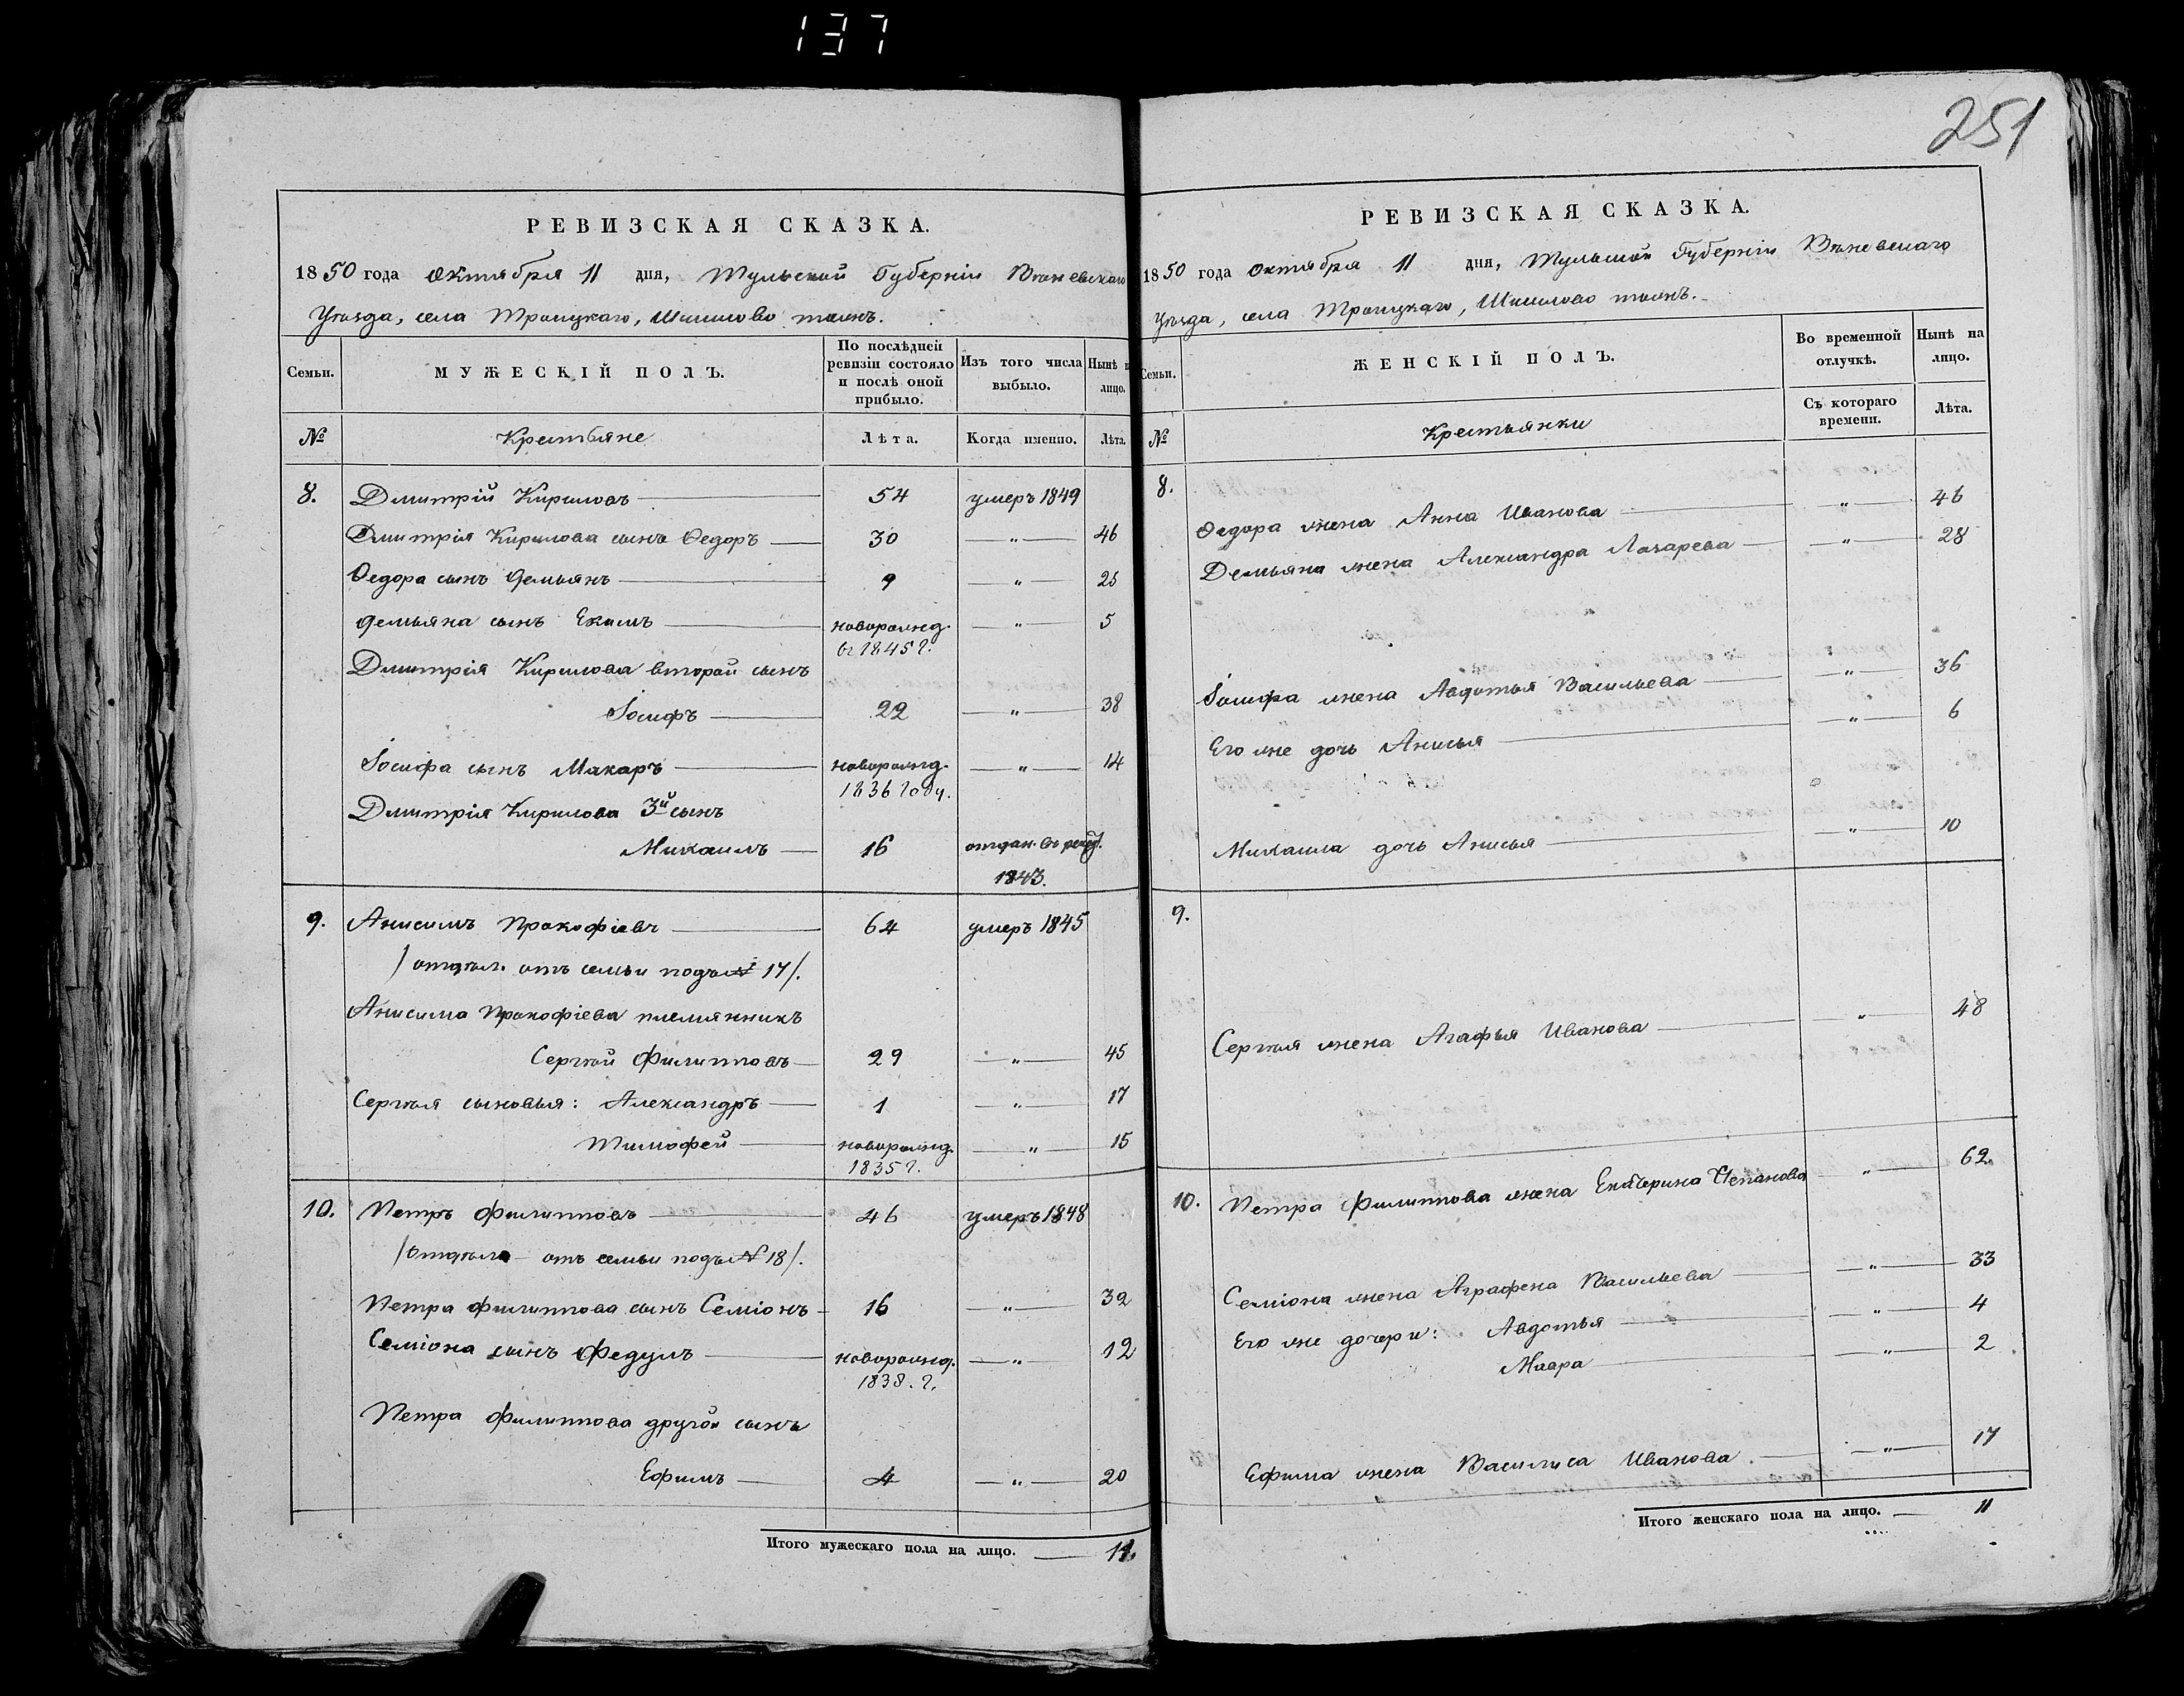 137
251
РЕВИЗСКАЯ СКАЗКА.
1850 года октября 11 дня, Тульской Губерніи Веневскаго
Уѣзда, села Троицкаго, Шишлово тожъ.
Семьи.
МУЖЕСКІЙ ПОЛЪ.
По послѣдней ревизіи состояло и послѣ оной прибыло.
Изъ того числа выбыло.
Нынѣ лицо.
№
Крестьяне
Лѣта.
Когда именно.
Лѣта.
8. Дмитрій Кириловъ 54 умеръ 1849
Дмитрія Кирилова сынъ Ѳедоръ 30 — „ — 46
Ѳедора сынъ Демьянъ 9 — „ — 25
Демьяна сынъ Екимъ новорожд. — „ — 5
въ 1845 г.
Дмитрія Кирилова второй сынъ
Іосифъ 22 — „ — 38
Іосифа сынъ Макаръ новорожд. — „ — 14
1836 году.
Дмитрія Кирилова 3й сынъ
Михаилъ 16 отдан. въ рекрут.
1843.
9. Анисимъ Прокофіевъ 64 умеръ 1845
/ отдѣл. отъ семьи подъ № 17/.
Анисима Прокофіева племянникъ
Сергѣй Филипповъ 29 — „ — 45
Сергѣя сыновья: Александръ 1 — „ — 17
Тимофей новорожд. — „ — 15
1835 г.
10. Петръ Филипповъ 46 умеръ 1848
/отдѣл. отъ семьи подъ № 18/.
Петра Филиппова сынъ Семіонъ 16 — „ — 32
Семіона сынъ Федулъ новорожд. — „ — 12
1838. г.
Петра Филиппова другой сынъ
Ефимъ 4 — „ — 20
Итого мужескаго пола на лицо. — 11.
РЕВИЗСКАЯ СКАЗКА.
1850 года октября 11 дня, Тульской Губерніи Веневскаго
Уѣзда, села Троицкаго, Шишлово тожъ.
Семьи.
ЖЕНСКІЙ ПОЛЪ.
Во временной отлучкѣ.
Нынѣ на лицо.
№
Крестьянки
Съ котораго времени.
Лѣта.
8.
Ѳедора жена Анна Иванова — „ — 46
Демьяна жена Александра Лазарева — „ — 28
Іосифа жена Авдотья Васильева — „ — 36
Его же дочь Анисья — „ — 6
Михаила дочь Анисья — „ — 10
9.
Сергѣя жена Агафья Иванова — „ — 48
10. Петра Филиппова жена Екатерина Степанова — „ — 62
Семіона жена Аграфена Васильева — „ — 33
Его же дочери: Авдотья — „ — 4
Мавра — „ — 2
Ефима жена Василиса Иванова. — „ — 17
Итого женскаго пола на лицо. — 11